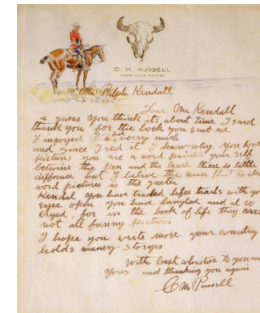 C. M. RUSSELL
Mr Ralph Kendall
Dear Mr Kendall
I guess you think its about time I said
thank you for the book you sent me
I injoyed it verry much
and since I red it I know why you like
pictures you are a word painter your self
betwine the pen and the brush there is little
diffrence but I believe the man that makes
word pictures is the greater
Kendal you have looked lifes trails with yo
eyes open you have laughed and al so
cryed for in the book of life they are
not all funny pictures
I hope you write more your country
holds maney storyes
With best whishes to you and
yours and thanking you again
C M Russell